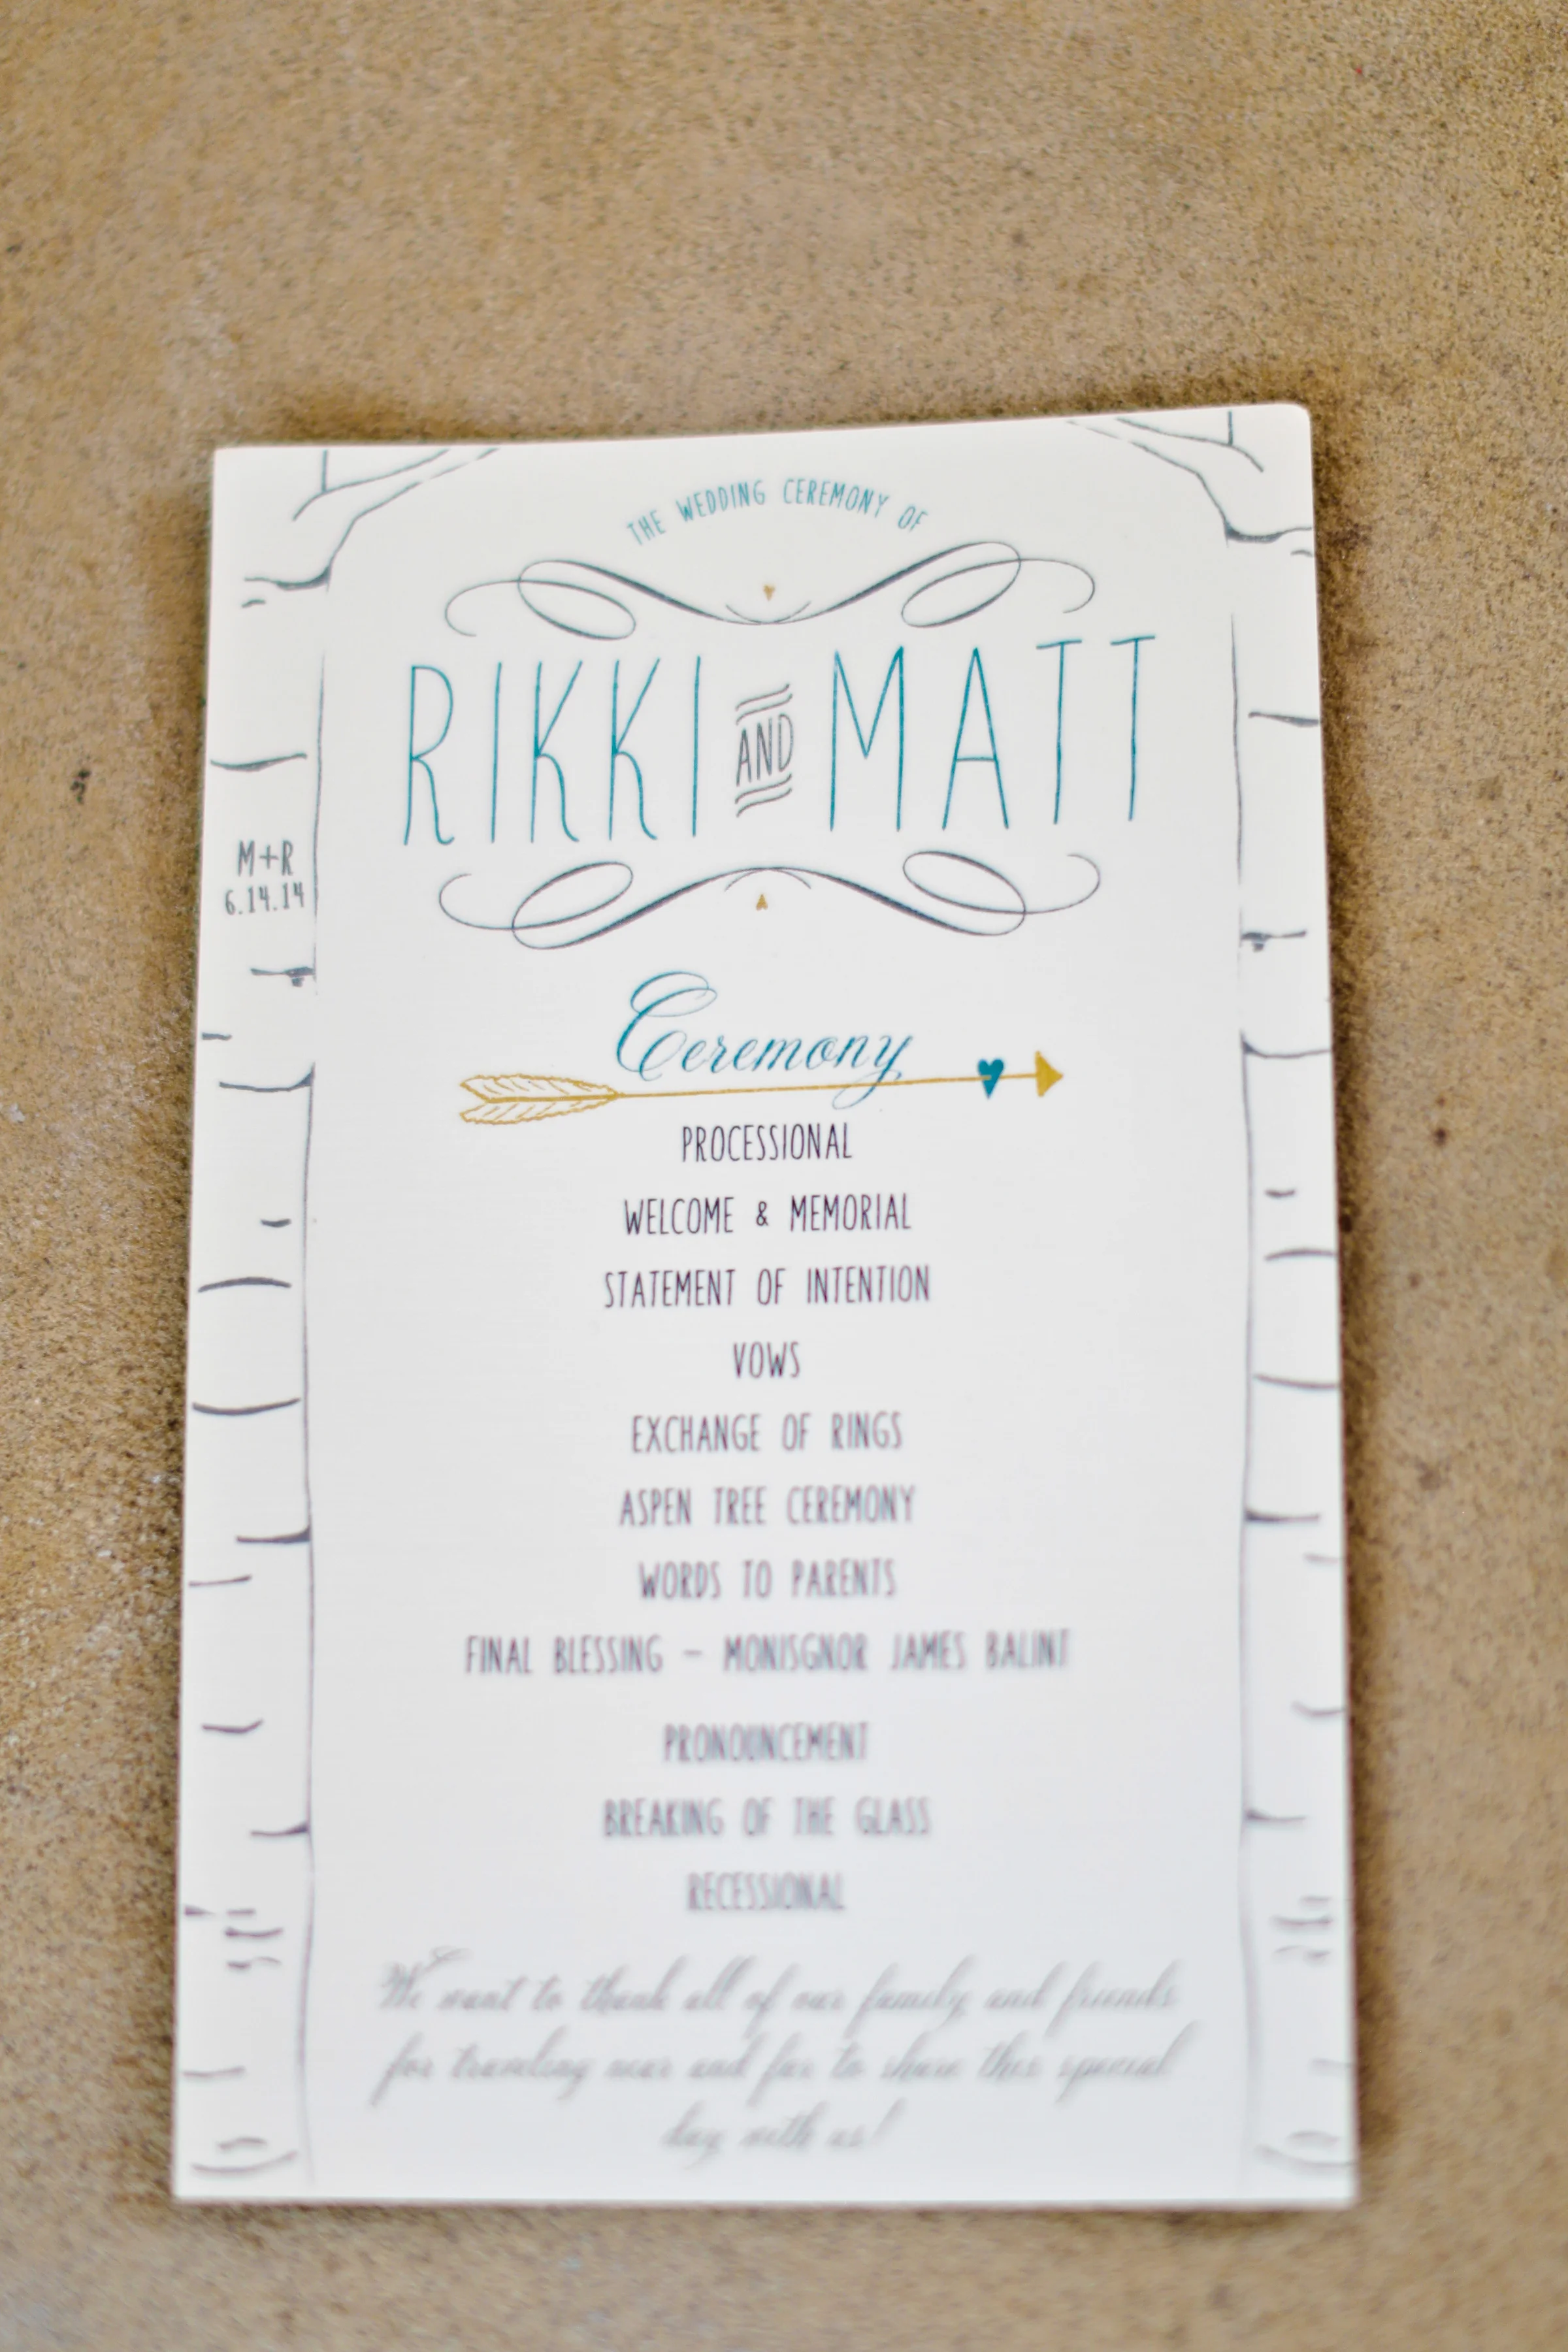 THE WEDDING CEREMONY OF
RIKKI AND MATT
M+R
6.14.14
Ceremony
PROCESSIONAL
WELCOME & MEMORIAL
STATEMENT OF INTENTION
VOWS
EXCHANGE OF RINGS
ASPEN TREE CEREMONY
WORDS TO PARENTS
FINAL BLESSING – MONISGNOR JAMES BALINT
PRONOUNCEMENT
BREAKING OF THE GLASS
RECESSIONAL
We want to thank all of our family and friends
for traveling near and far to share this special
day with us!